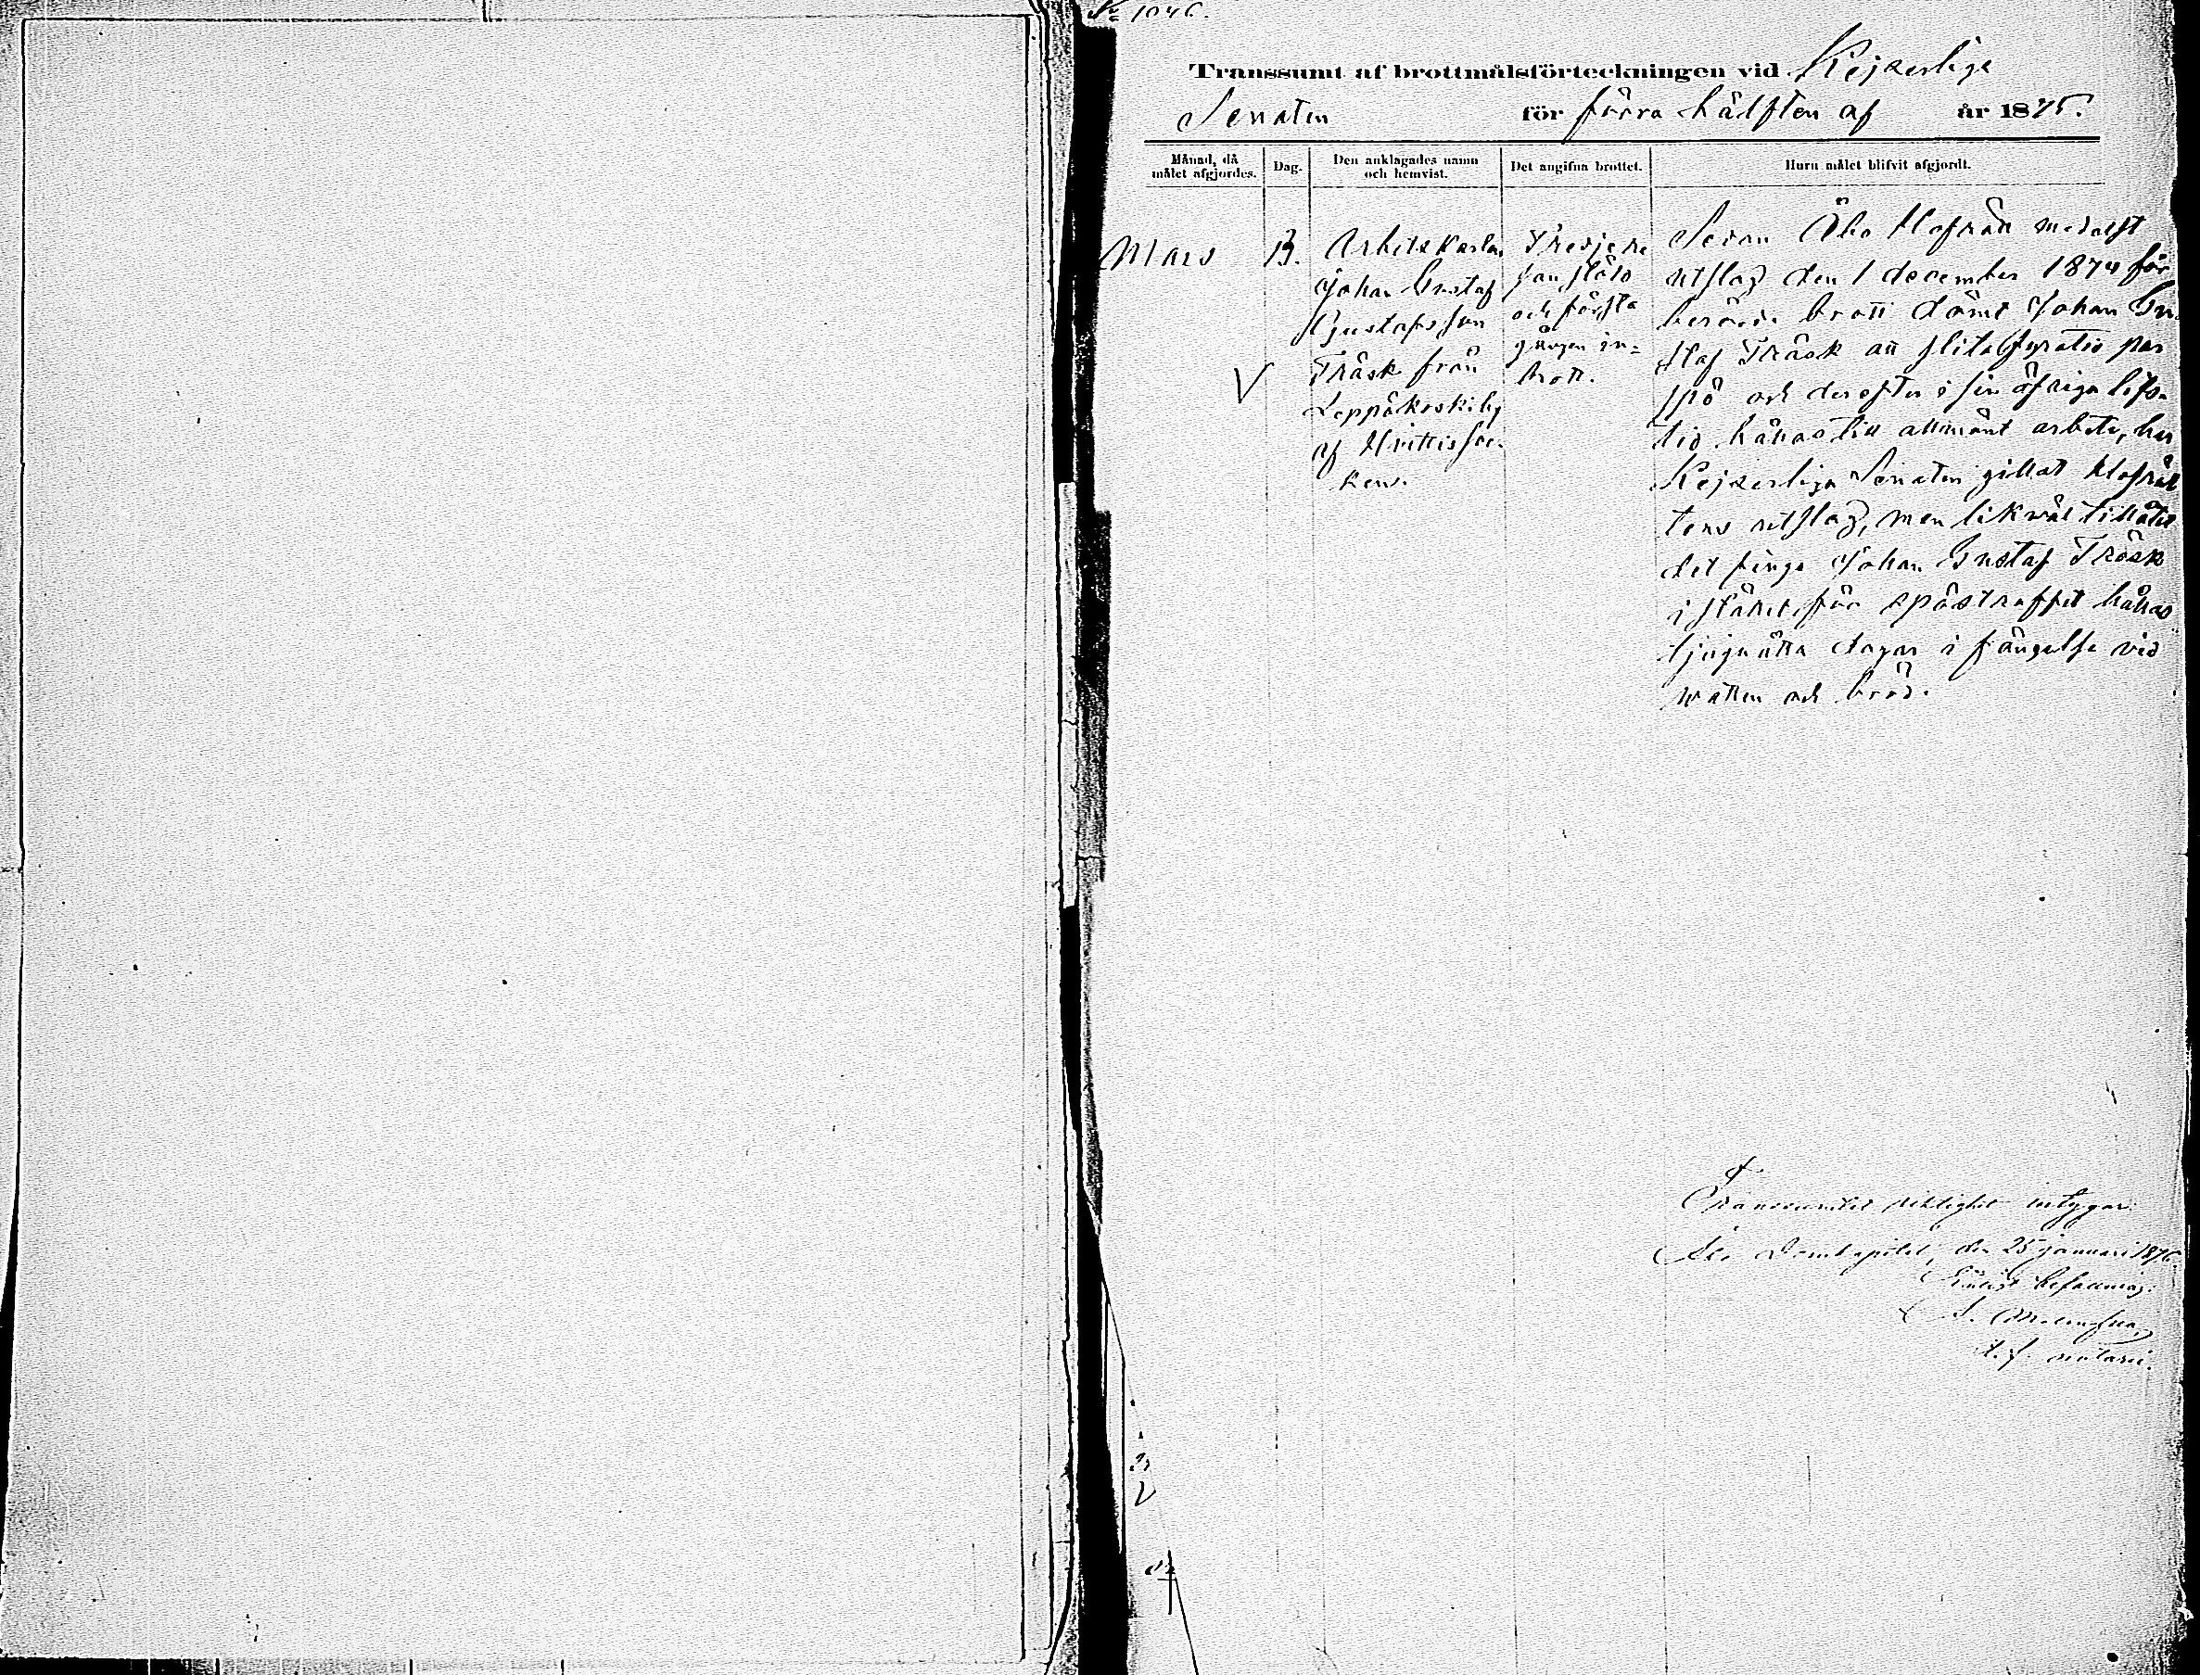 No 1046.
Transsumt af brottmålsförteckningen vid Kejserliga
Senaten för förra hälften af år 1875.
Månad, då
målet afgjordes.
Dag.
Den anklagades namn
och hemvist.
Det angifna brottet.
Huru målet blifvit afgjordt.
Mars
13.
Arbetskarlen
Johan Gustaf
Gustafsson
Träsk från
Leppäkoskiby
af Hvittis soc-
ken.
Tredje re-
san stöld
och första
gången in-
brott.
Sedan Åbo Hofrätt medelst
utslag den 1 december 1874 för
berörde brott dömt Johan Gu-
staf Träsk att slita fyratio par
spö och derefter i sin öfriga lifs-
tid hållas till allmänt arbete, har
Kejserliga Senaten gillat Hofrät
tens utslag, men likväl tillåtit
det finge Johan Gustaf Träsk
i stället för spöstraffet hållas
tjuguåtta dagar i fängelse vid
watten och bröd.
Transsumtets riktighet intygar:
Åbo Domkapitel, den 25 januari 1876.
Enligt befallning:
t. f. notarie.
V